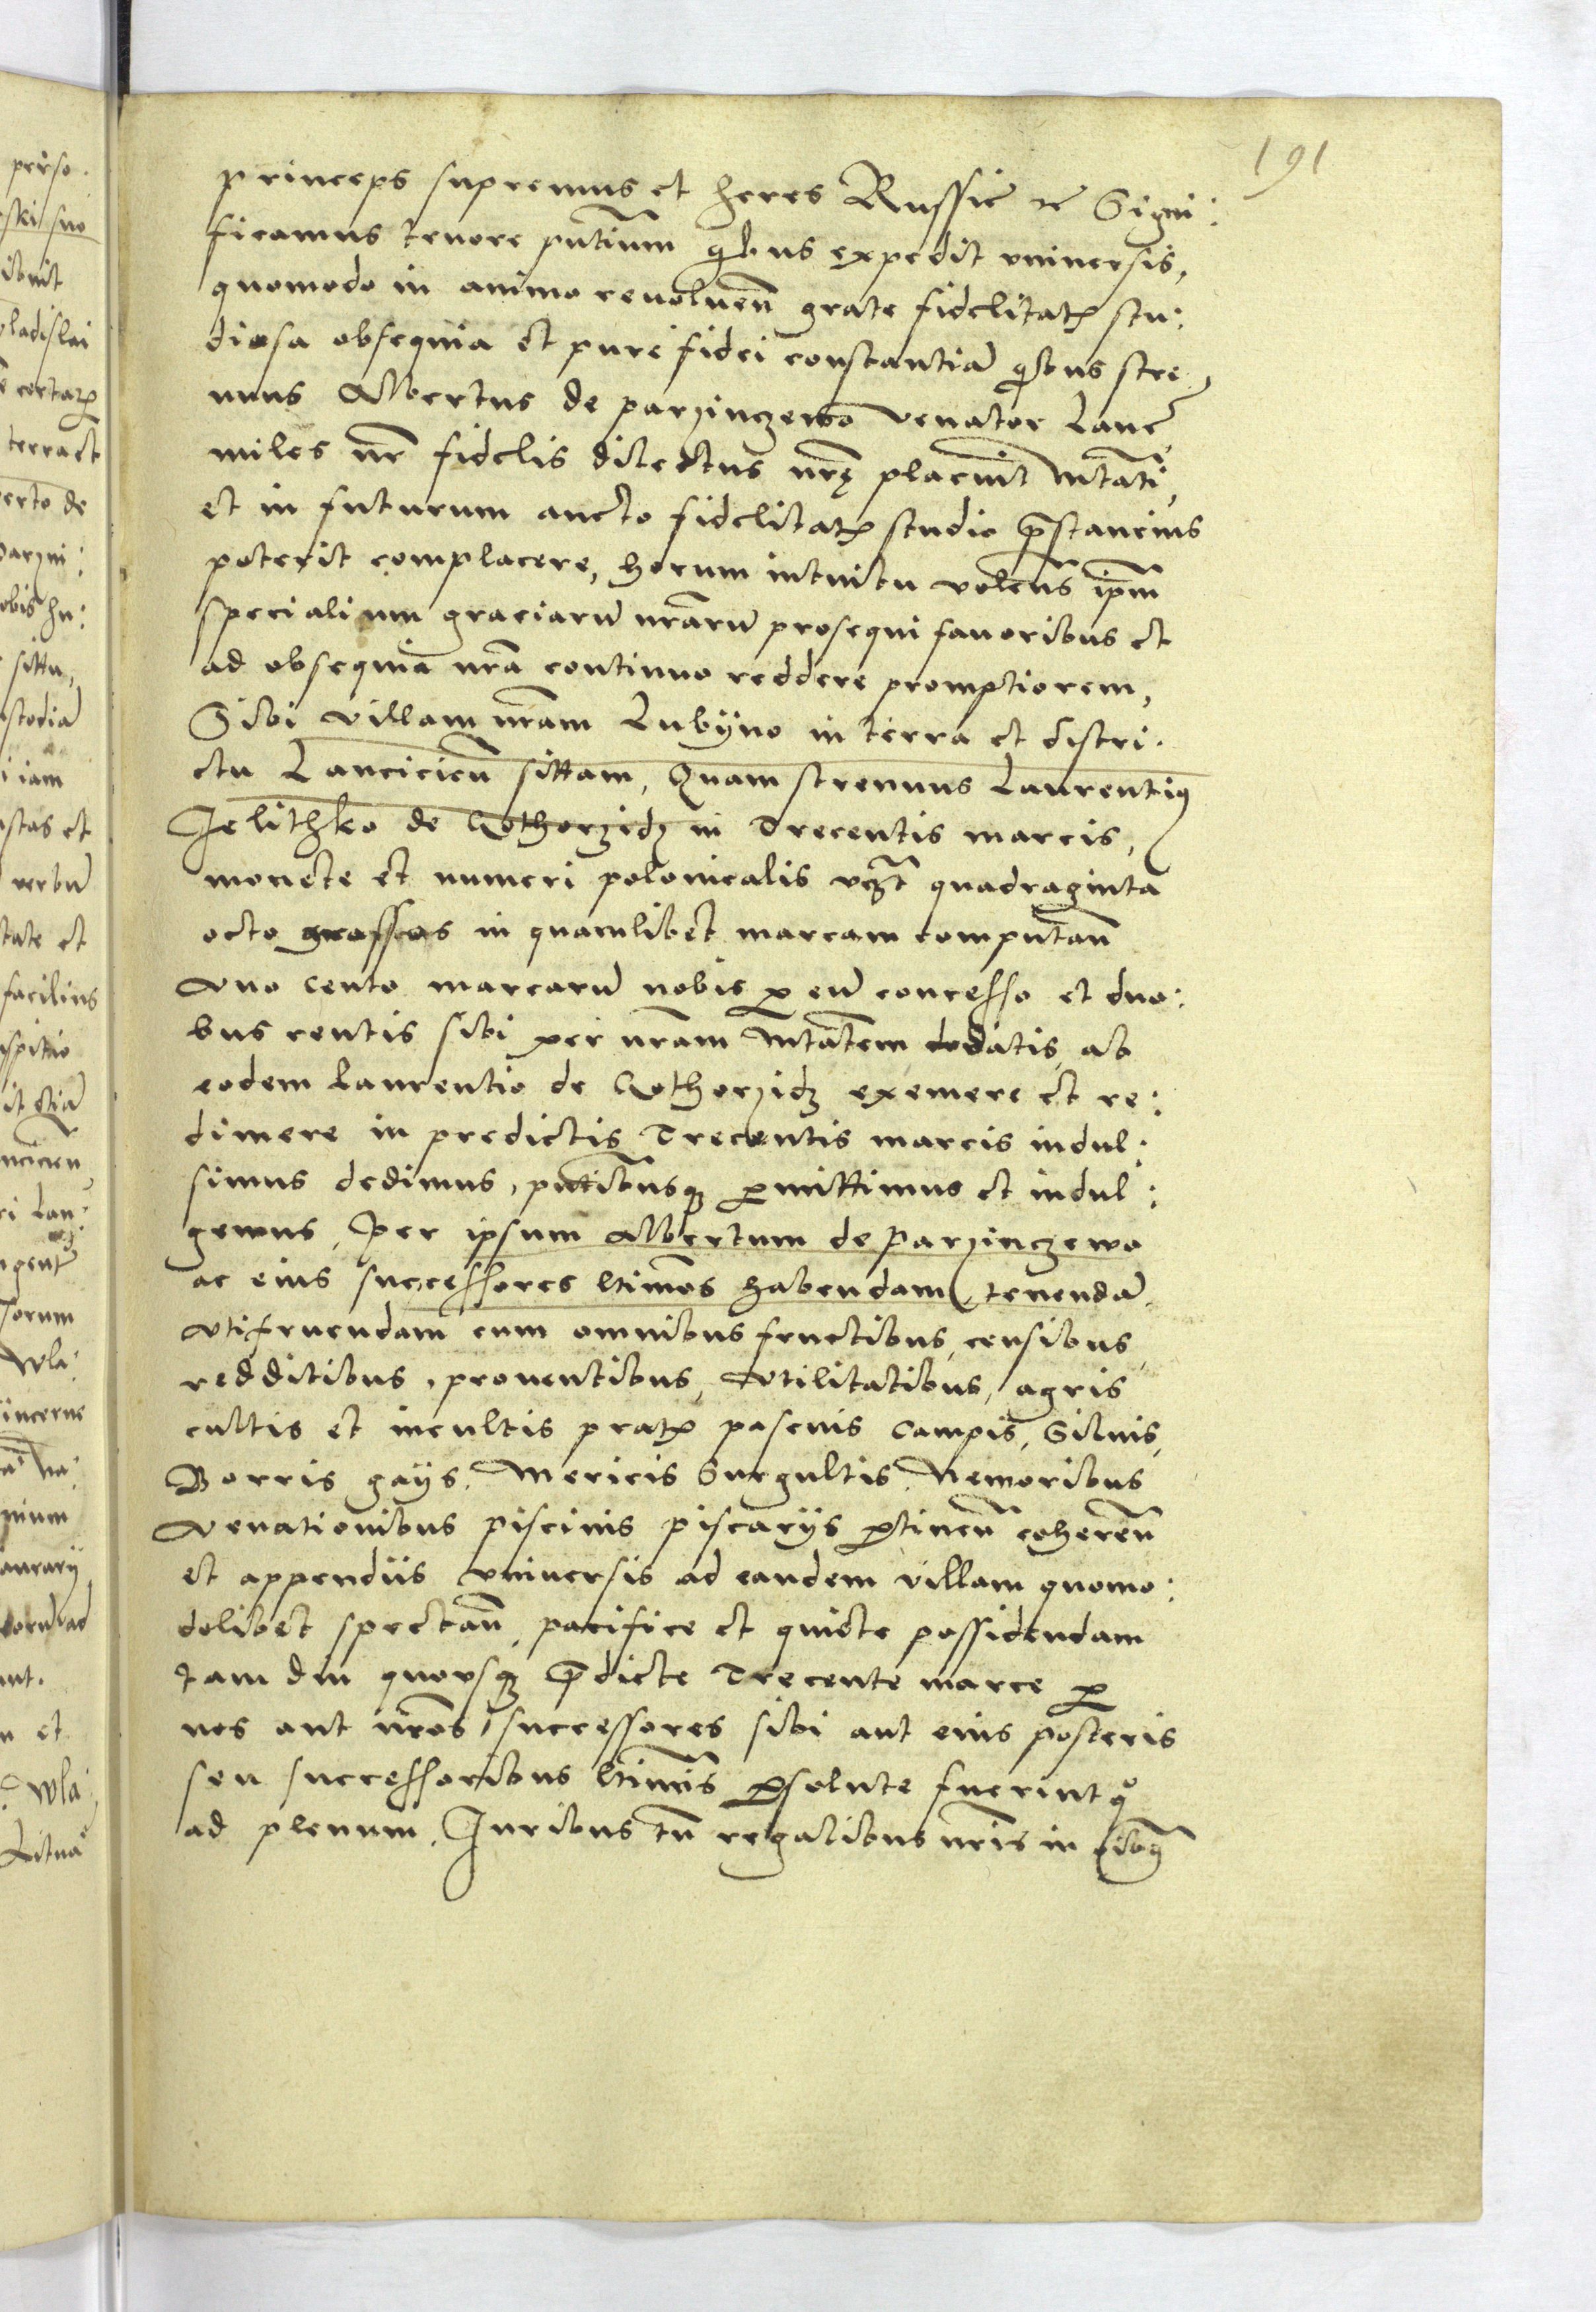 191
princeps supremus et heres Russie etc Signi:
ficamus tenore pntium quibus expedit vniuersis,
quomodo in animo reuoluen grate fidelitatis stu:
diosa obsequia et pure fidei constantia quibus stre
nuus Albertus de parzinczewo venator Lanc
miles nr fidelis dilectus nrę placuit Mtati,
et in futurum aucto fidelitatis studio prestancius
poterit complacere, horum intuitu volens ipm
specialium graciaru nraru prosequi fauoribus et
ad obsequia nra continuo reddere promptiorem,
Sibi villam nram Lubyno in terra et distri:
ctu Lancicien sittam, Quam strenuus Laurentius
Jelithko de Cothorzidz in Trecentis marcis,
monete et numeri polonicalis vczt quadraginta
octo grossos in quamlibet marcam computan
Vno cento marcaru nobis per eu concesso et duo:
bus centis sibi per nram Mtatem dedatis, ab
eodem Laurentio de Cothorzidz exemere et re:
dimere in predictis Trecentis marcis indul:
simus dedimus, pntibusque permittimus et indul:
gemus, per ipsum Albertum de Parzinczewo
ac eius successores ltimos habendam, tenenda
Vtifruendam cum omnibus fructibus, censibus,
redditibus, prouentibus, Vtilitatibus, agris
cultis et incultis pratis pascuis Campis, Siluis,
Borris gays, Mericis Surgultis, Nemoribus
Venationibus piscinis piscarys pertinen coheren
et appendiis vniuersis ad eandem villam quomo:
dolibet spectan, pacifice et quiete possidendam
tam diu quousque predicte Trecente marce per
nos aut nros successores sibi aut eius posteris
seu successoribus ltimis persolute fuerint
ad plenum, Juribus tn regalibus nris in oibus